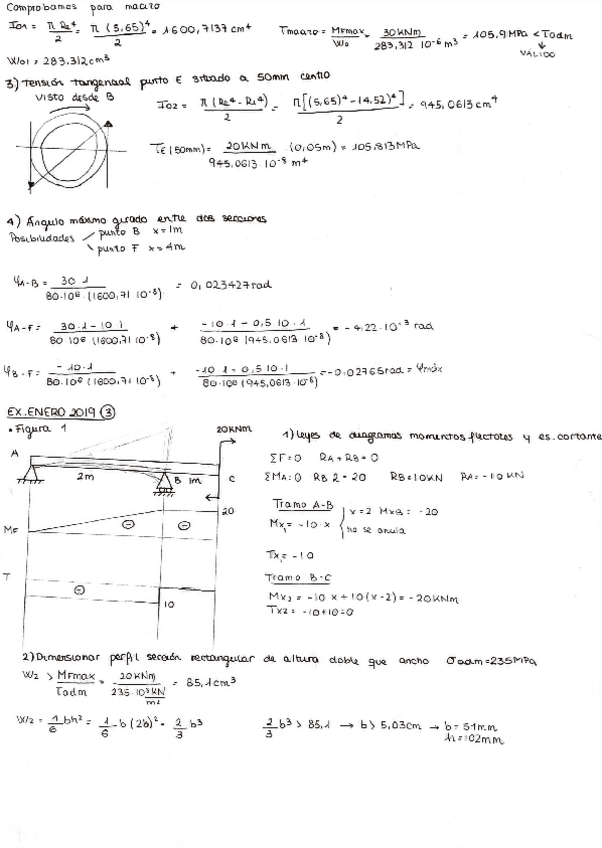 Comprobamos para macizo
I01 = π Re⁴/2 = π (5,65)⁴/2 = 1600,7137 cm⁴
τmacizo = MFmax/W0 = 30KNm/283,312 10⁻⁶ m³ = 105,9 MPa < τadm
↓
VÁLIDO
W01 = 283,312 cm³
3) Tensión tangencial punto E situado a 50mm centro
Visto desde B
I02 = π(Re⁴ - Ri⁴)/2 = π[(5,65)⁴ - (4,52)⁴]/2 = 945,0613 cm⁴
τE (50mm) = 20KNm/945,0613·10⁻⁸ m⁴ · (0,05m) = 105,813 MPa
4) Ángulo máximo girado entre dos secciones
Posibilidades
punto B x = 1m
punto F x = 4m
φA-B = 30·1/80·10⁶·(1600,71 10⁻⁸) = 0,023427 rad
φA-F = 30·1 - 10·1/80·10⁶(1600,71 10⁻⁸) + -10·1 - 0,5·10·1/80·10⁶(945,0613·10⁻⁸) = -4,22·10⁻³ rad
φB-F = -10·1/80·10⁶(1600,71 10⁻⁸) + -10·1 - 0,5·10·1/80·10⁶(945,0613·10⁻⁸) = -0,02765 rad = φmáx
EX. ENERO 2019 (3)
• Figura 1
20KNm
A
2m
B
1m
C
1) Leyes de diagramas momentos flectores y es. cortante
ΣF = 0 RA + RB = 0
ΣMA = 0 RB 2 = 20 RB = 10KN RA = -10KN
Tramo A-B
Mx₁ = -10·x
x = 2 MxB = -20
no se anula
Tx₁ = -10
Tramo B-C
Mx₂ = -10x + 10(x-2) = -20KNm
Tx₂ = -10+10 = 0
MF
⊖
⊖
20
T
⊖
10
2) Dimensionar perfil sección rectangular de altura doble que ancho σadm = 235 MPa
Wz > MFmax/τadm = 20KNm/235·10³ KN/m² = 85,1 cm³
Wz = 1/6 bh² = 1/6 · b(2b)² = 2/3 b³
2/3 b³ > 85,1 → b > 5,03cm → b = 51mm
h = 102mm